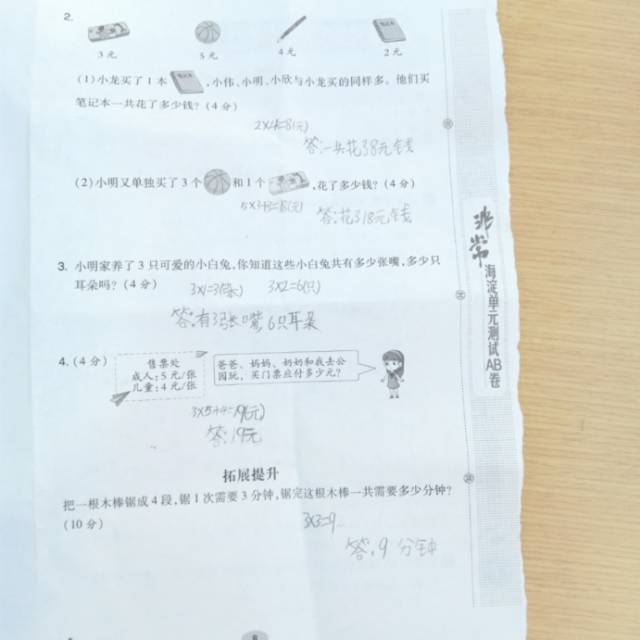 2.
3元 5元 4元 2元
(1)小龙买了1本 ,小伟、小明、小欣与小龙买的同样多。他们买
笔记本一共花了多少钱？(4分)
2×4=8(元)
答:一共花了8元钱
(2)小明又单独买了3个 和1个 ,花了多少钱？(4分)
5×3+3=18(元)
答:花了18元钱
3. 小明家养了3只可爱的小白兔,你知道这些小白兔共有多少张嘴,多少只
耳朵吗？(4分)
3×1=3(张) 3×2=6(只)
答:有3张嘴6只耳朵
4.(4分)
售票处
成人:5元/张
儿童:4元/张
爸爸、妈妈、奶奶和我去公
园玩，买门票应付多少元？
3×5+4=19(元)
答:19元
拓展提升
把一根木棒锯成4段,锯1次需要3分钟,锯完这根木棒一共需要多少分钟？
(10分)
3×3=9
答:9分钟
非常
海淀单元测试AB卷